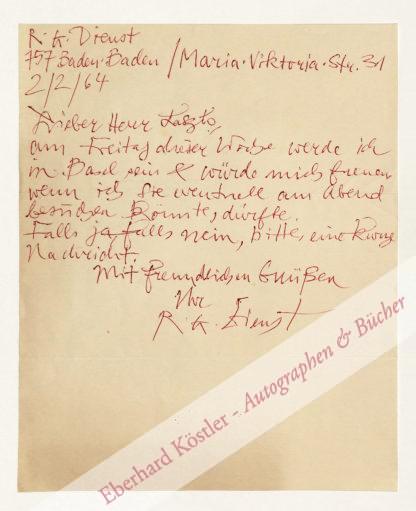 R. G. Dienst
757 Baden-Baden / Maria-Viktoria-Str. 31
2/2/64
Lieber Herr Laszlo,
am Freitag dieser Woche werde ich
in Basel sein & würde mich freuen
wenn ich Sie eventuell am Abend
besuchen könnte, dürfte.
Falls ja, falls nein, bitte, eine kurze
Nachricht.
Mit freundlichen Grüßen
Ihr
R. G. Dienst
Eberhard Köstler - Autographen & Bücher